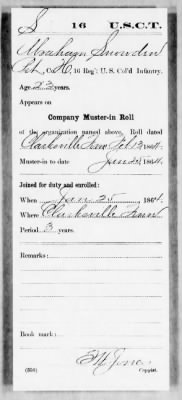 S 16 U.S.C.T.
Abraham Snowden
Pvt., Co. H, 16 Reg't U. S. Col'd Infantry.
Age 23 years.
Appears on
Company Muster-in Roll
of the organization named above. Roll dated
Clarksville Tenn Feb 13, 1864.
Muster-in to date Jan 25, 1864.
Joined for duty and enrolled:
When Jan 25, 1864.
Where Clarksville Tenn
Period 3 years.
Remarks:
Book mark:
(356) Copyist.